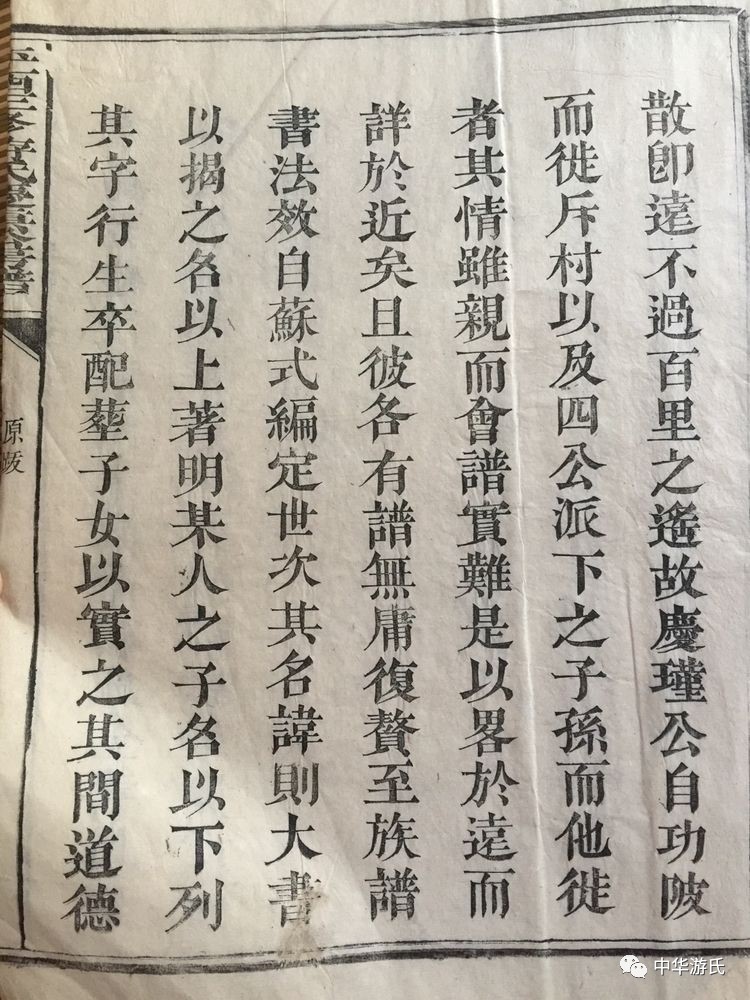 散卽遠不過百里之遙故慶瑾公自功陂
而徙斥村以及四公派下之子孫而他徙
者其情雖親而會譜實難是以畧於遠而
詳於近矣且彼各有譜無庸復贅至族譜
書法效自蘇式編定世次其名諱則大書
以揭之名以上著明某人之子名以下列
其字行生卒配塟子女以實之其間道德
原跋
中华游氏